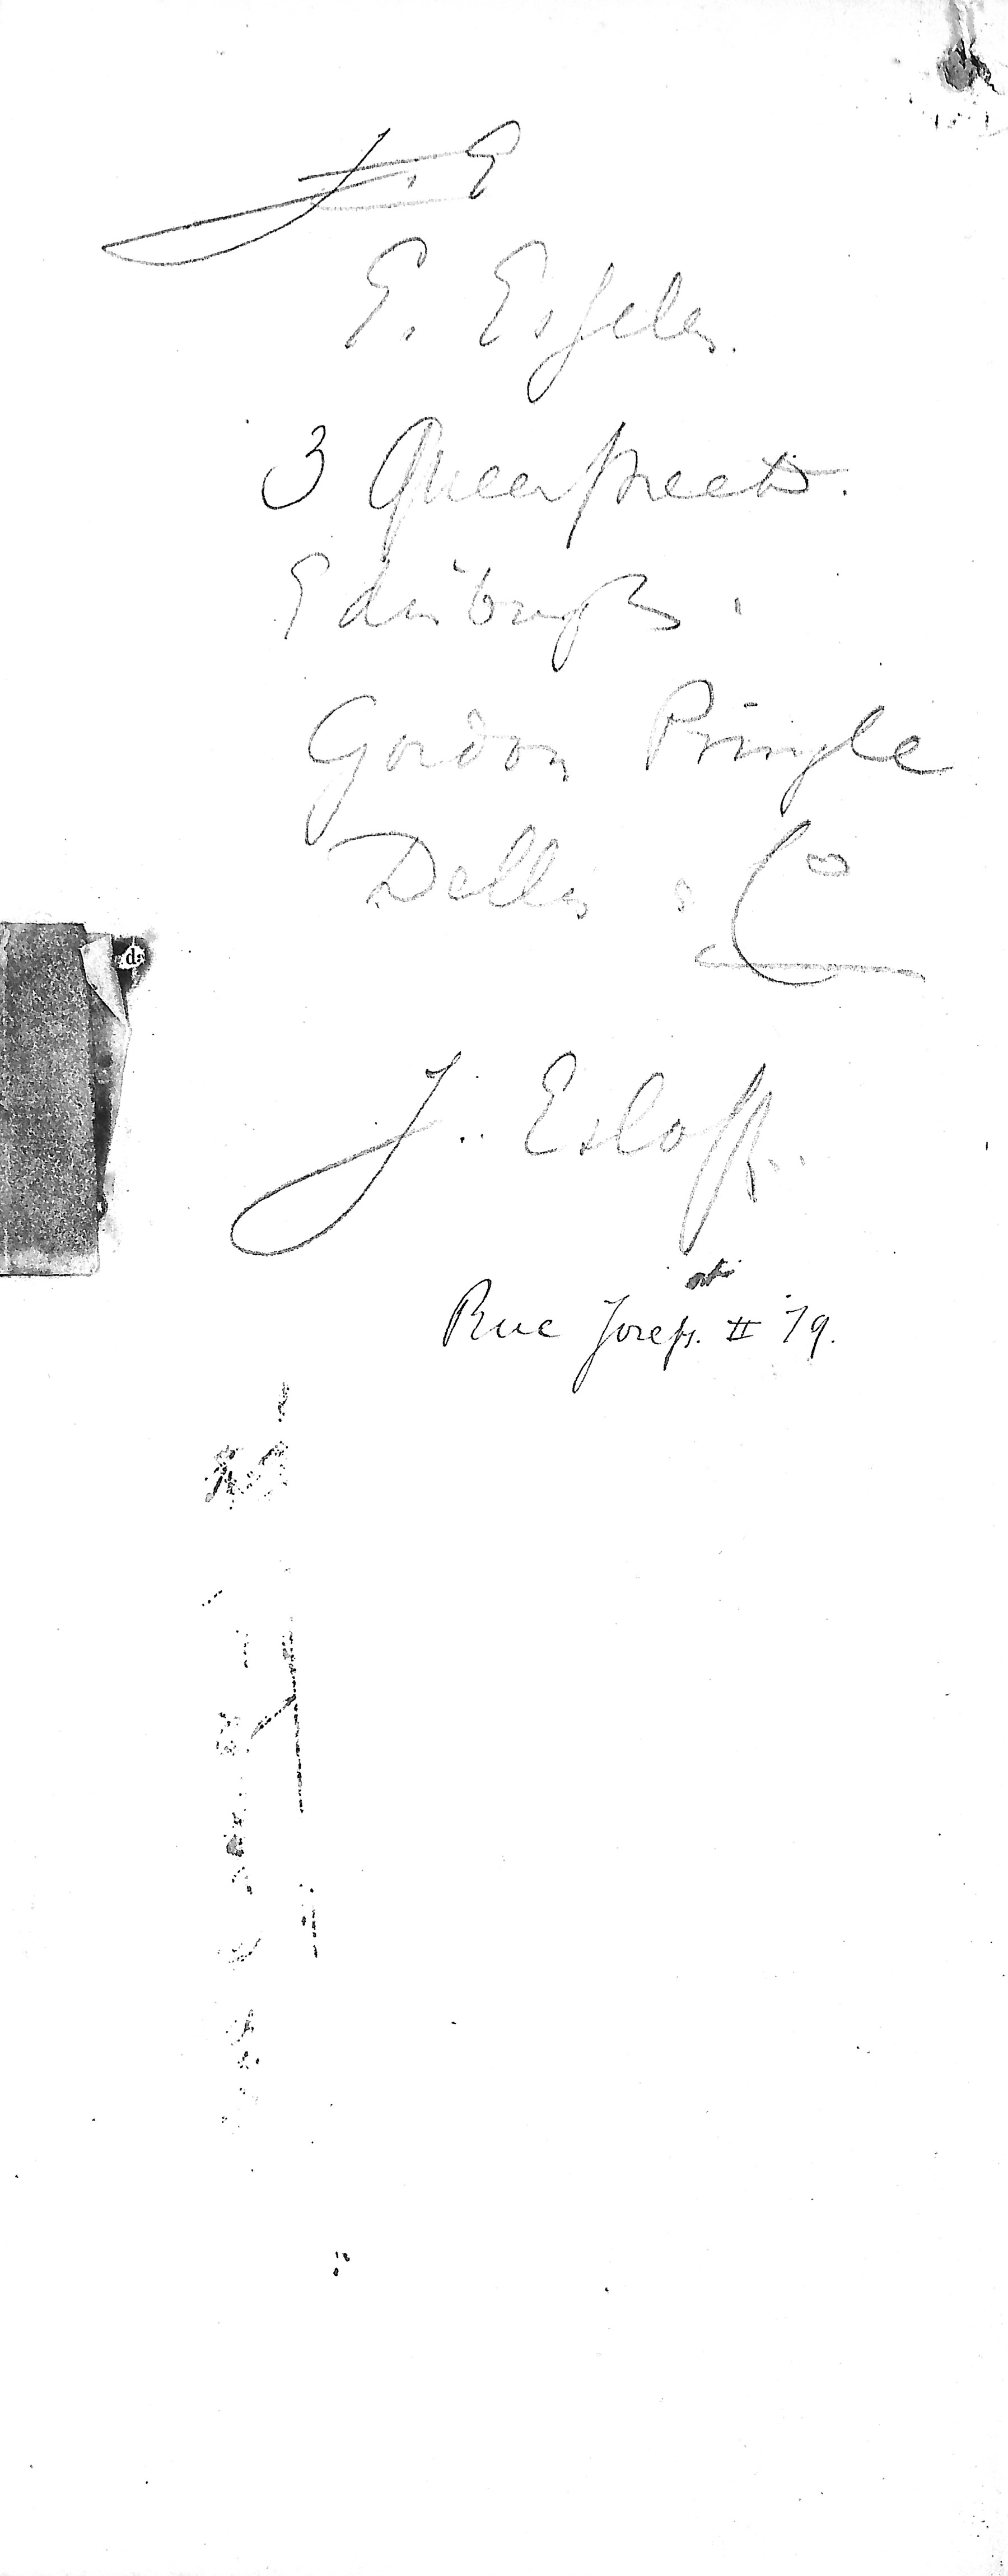 J. E
E. Esselen.
3 Queenstreet.
Edinburgh.
Gordon Pringle
Dallas & Co
J. Esloff.
Rue Joseph II 79.